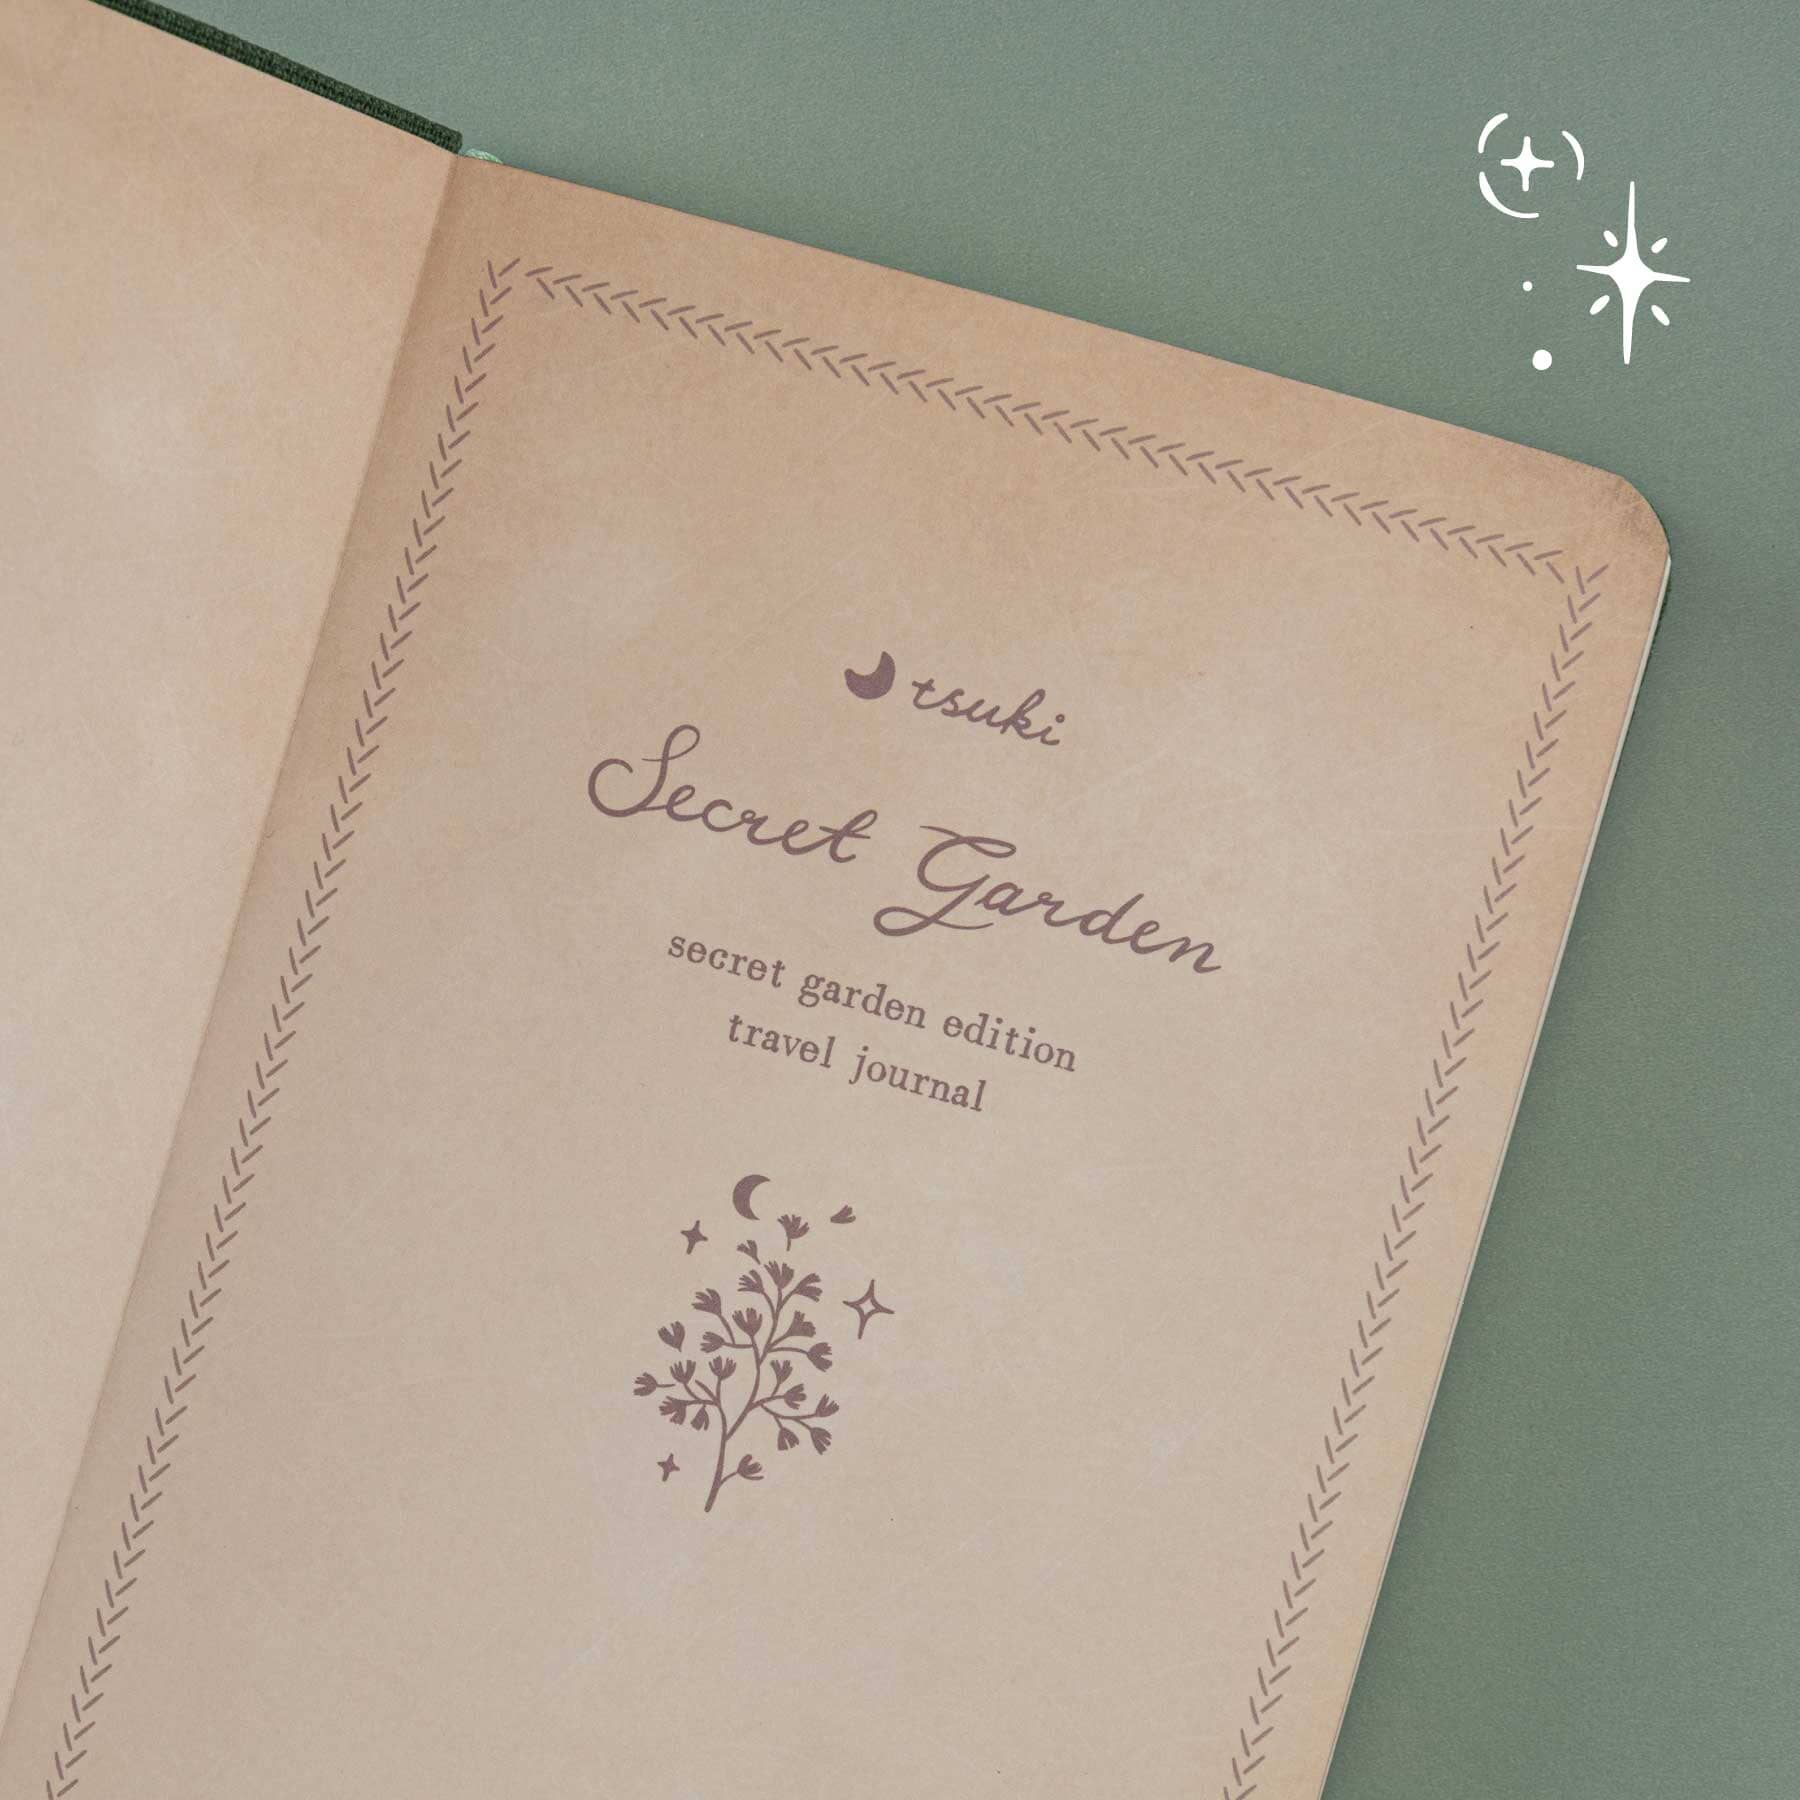 tsuki
Secret Garden
secret garden edition
travel journal